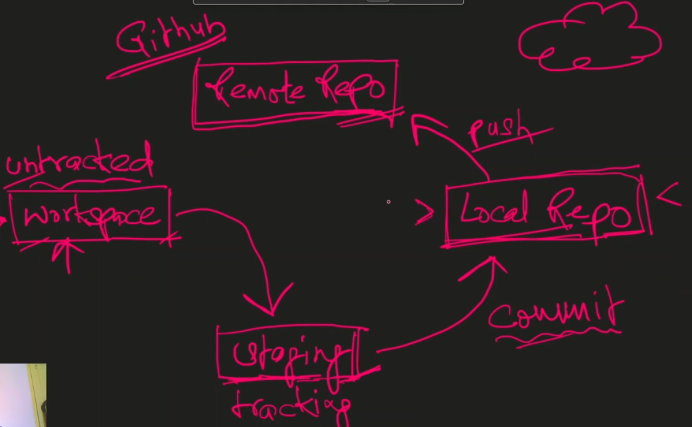 Github
Remote Repo
push
untracked
Workspace
Local Repo
Commit
Staging
tracking